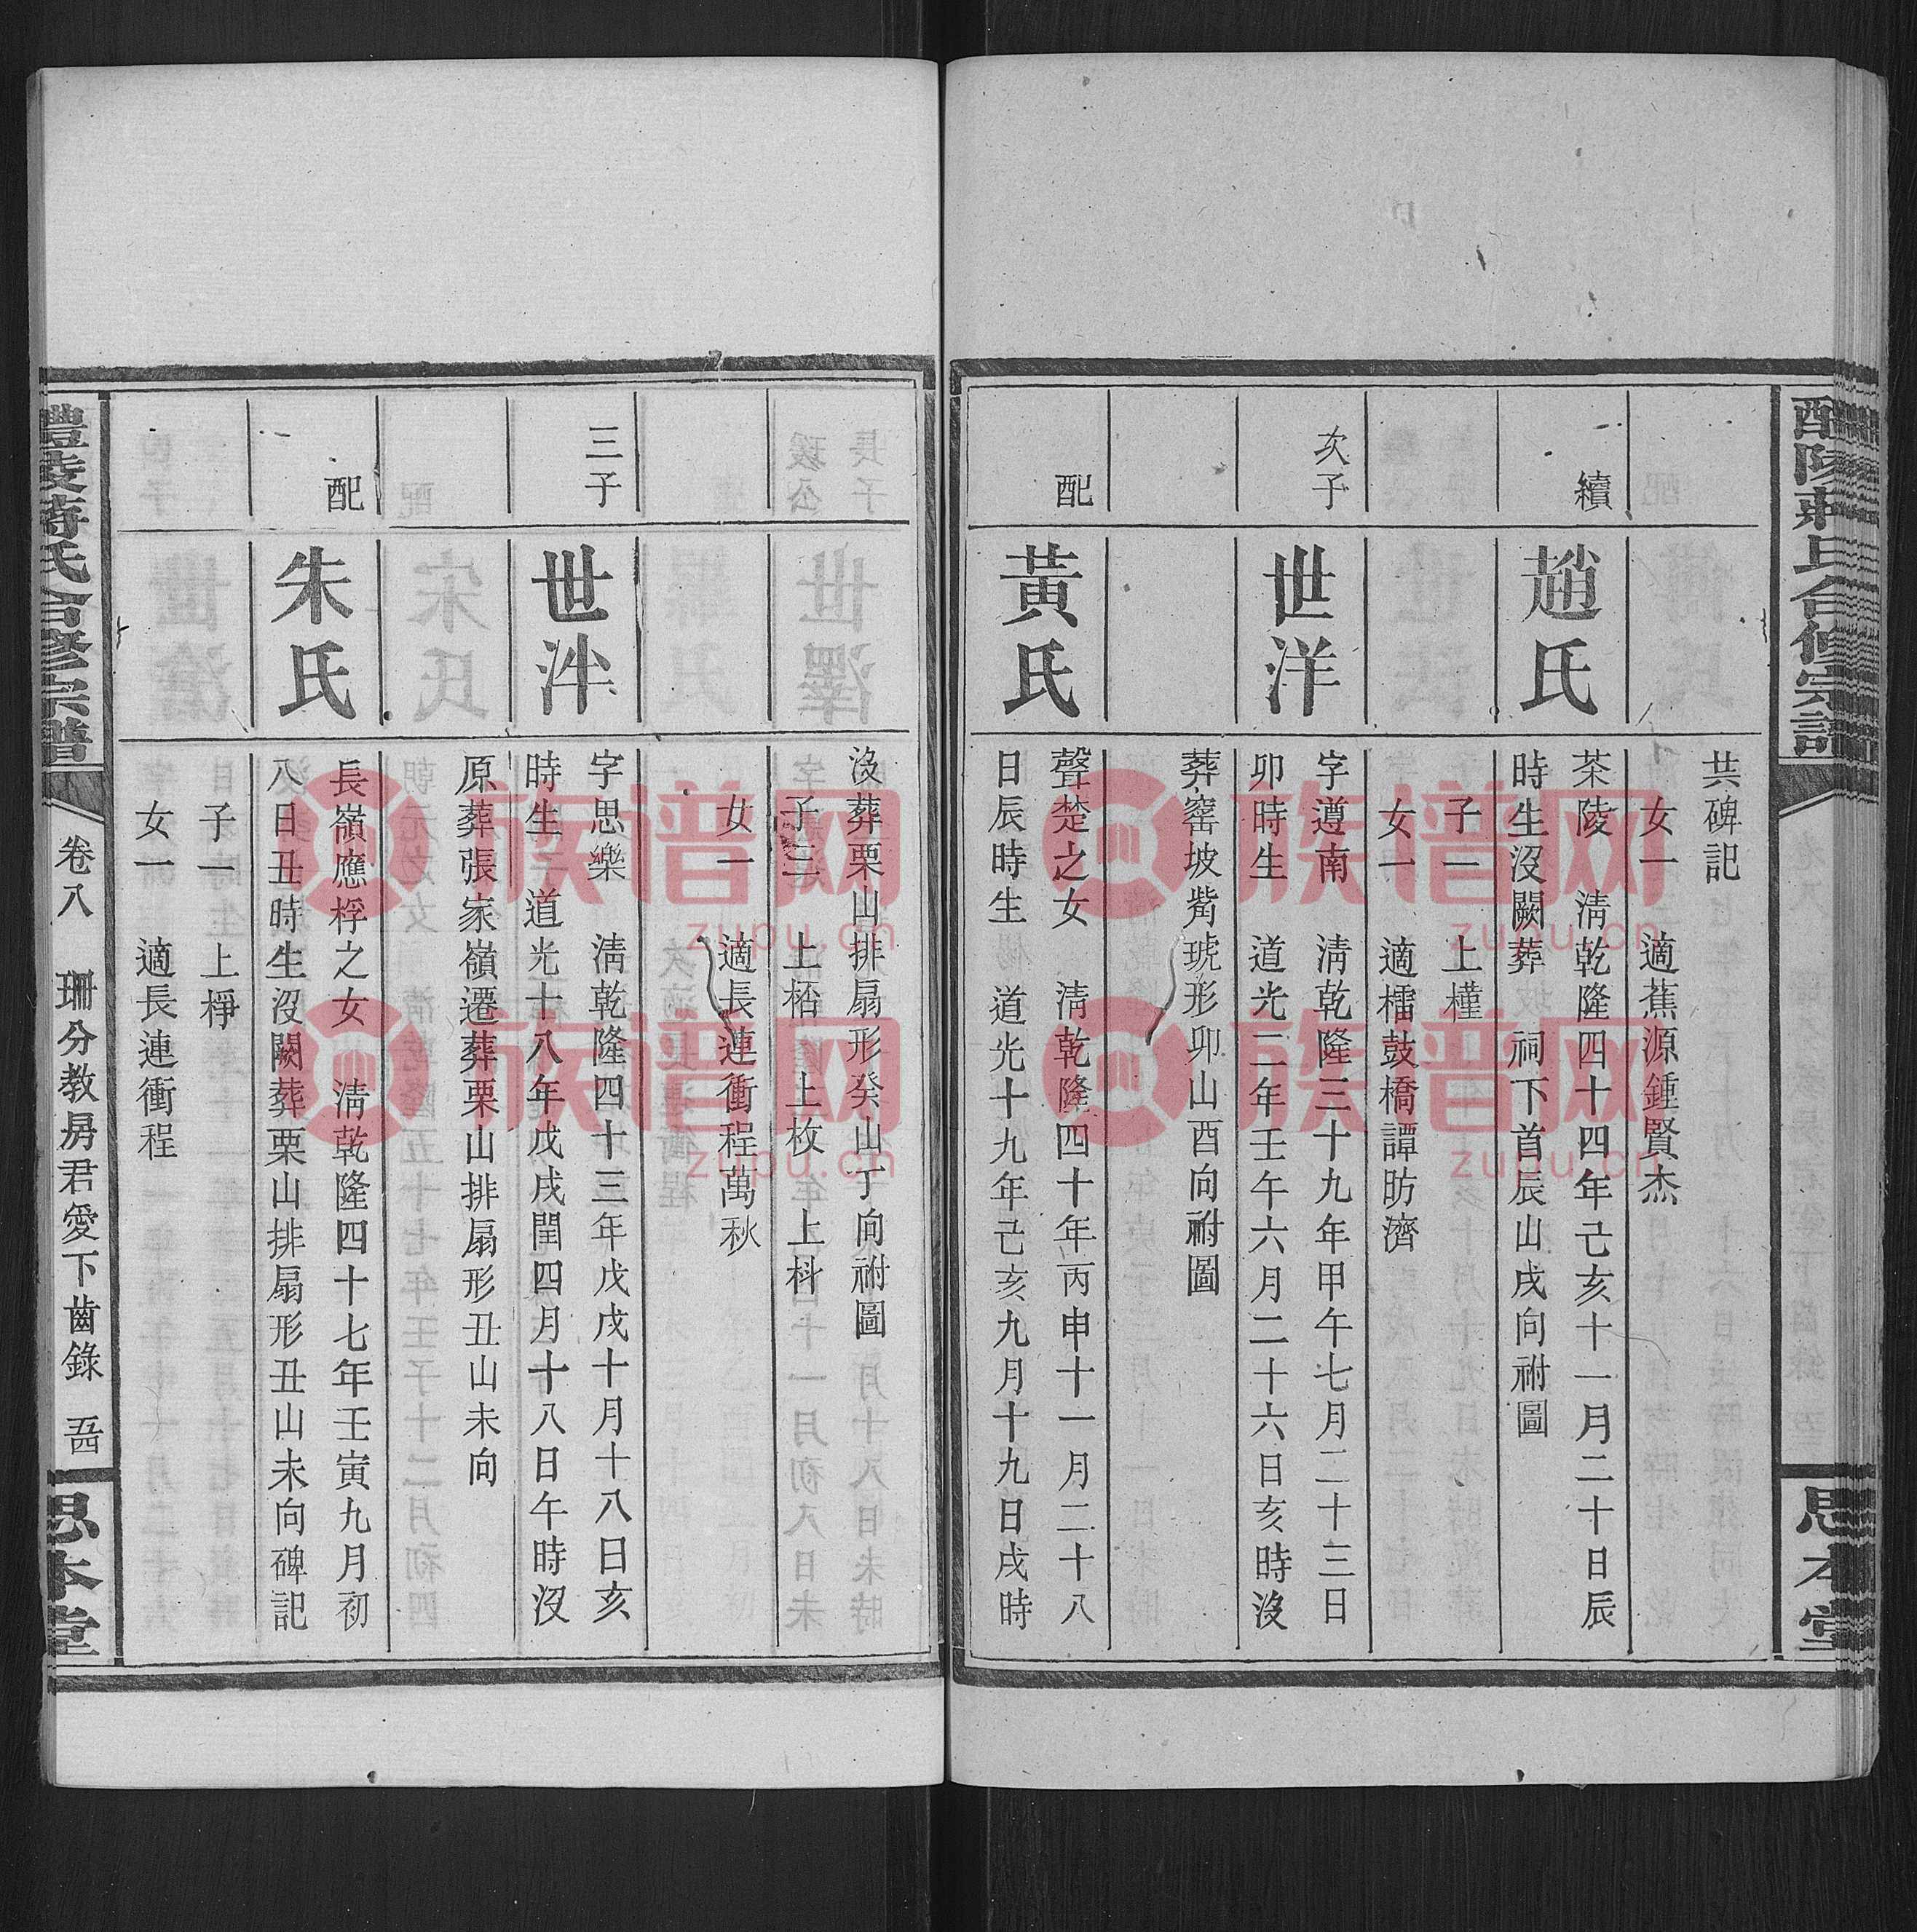 共碑記
女一　適蕉源鍾賢杰
續
趙氏
茶陵　淸乾隆四十四年己亥十一月二十日辰
時生沒闕葬　祠下首辰山戌向祔圖
子一　上橦
女一　適櫺鼓橋譚昉濟
次子
世洋
字遵南　淸乾隆三十九年甲午七月二十三日
卯時生　道光二年壬午六月二十六日亥時沒
葬窰坡觜琥形卯山酉向祔圖
配
黃氏
聲楚之女　淸乾隆四十年丙申十一月二十八
日辰時生　道光十九年己亥九月十九日戌時
沒葬栗山排扇形癸山丁向祔圖
子三　上㭘　上枚　上科
女一　適長連衝程萬秋
三子
世泮
字思樂　淸乾隆四十三年戊戌十月十八日亥
時生　道光十八年戊戌閏四月十八日午時沒
原葬張家嶺遷葬栗山排扇形丑山未向
配
朱氏
長嶺應桴之女　淸乾隆四十七年壬寅九月初
八日丑時生沒闕葬栗山排扇形丑山未向碑記
子一　上㮐
女一　適長連衝程
醴陵蔣氏合修宗譜
卷八　珊分教房君愛下齒錄　五四
思本堂
族谱网
zupu.cn